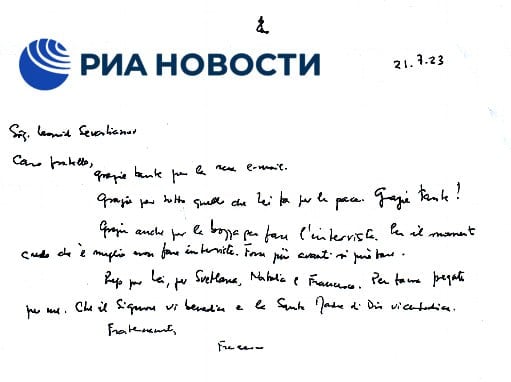 РИА НОВОСТИ
21.7.23
Sig. Leonid Sevastianov
Caro fratello,
grazie tante per la sua e-mail.
Grazie per tutto quello che Lei fa per la pace. Grazie tante!
Grazie anche per la bozza per fare l'intervista. Per il momento
credo che è meglio non fare interviste. Forse più avanti si può fare.
Prego per Lei, per Svetlana, Natalia e Francesco. Per favore pregate
per me. Che il Signore vi benedica e la Santa Madre di Dio vi custodisca.
Fraternamente,
Francesco